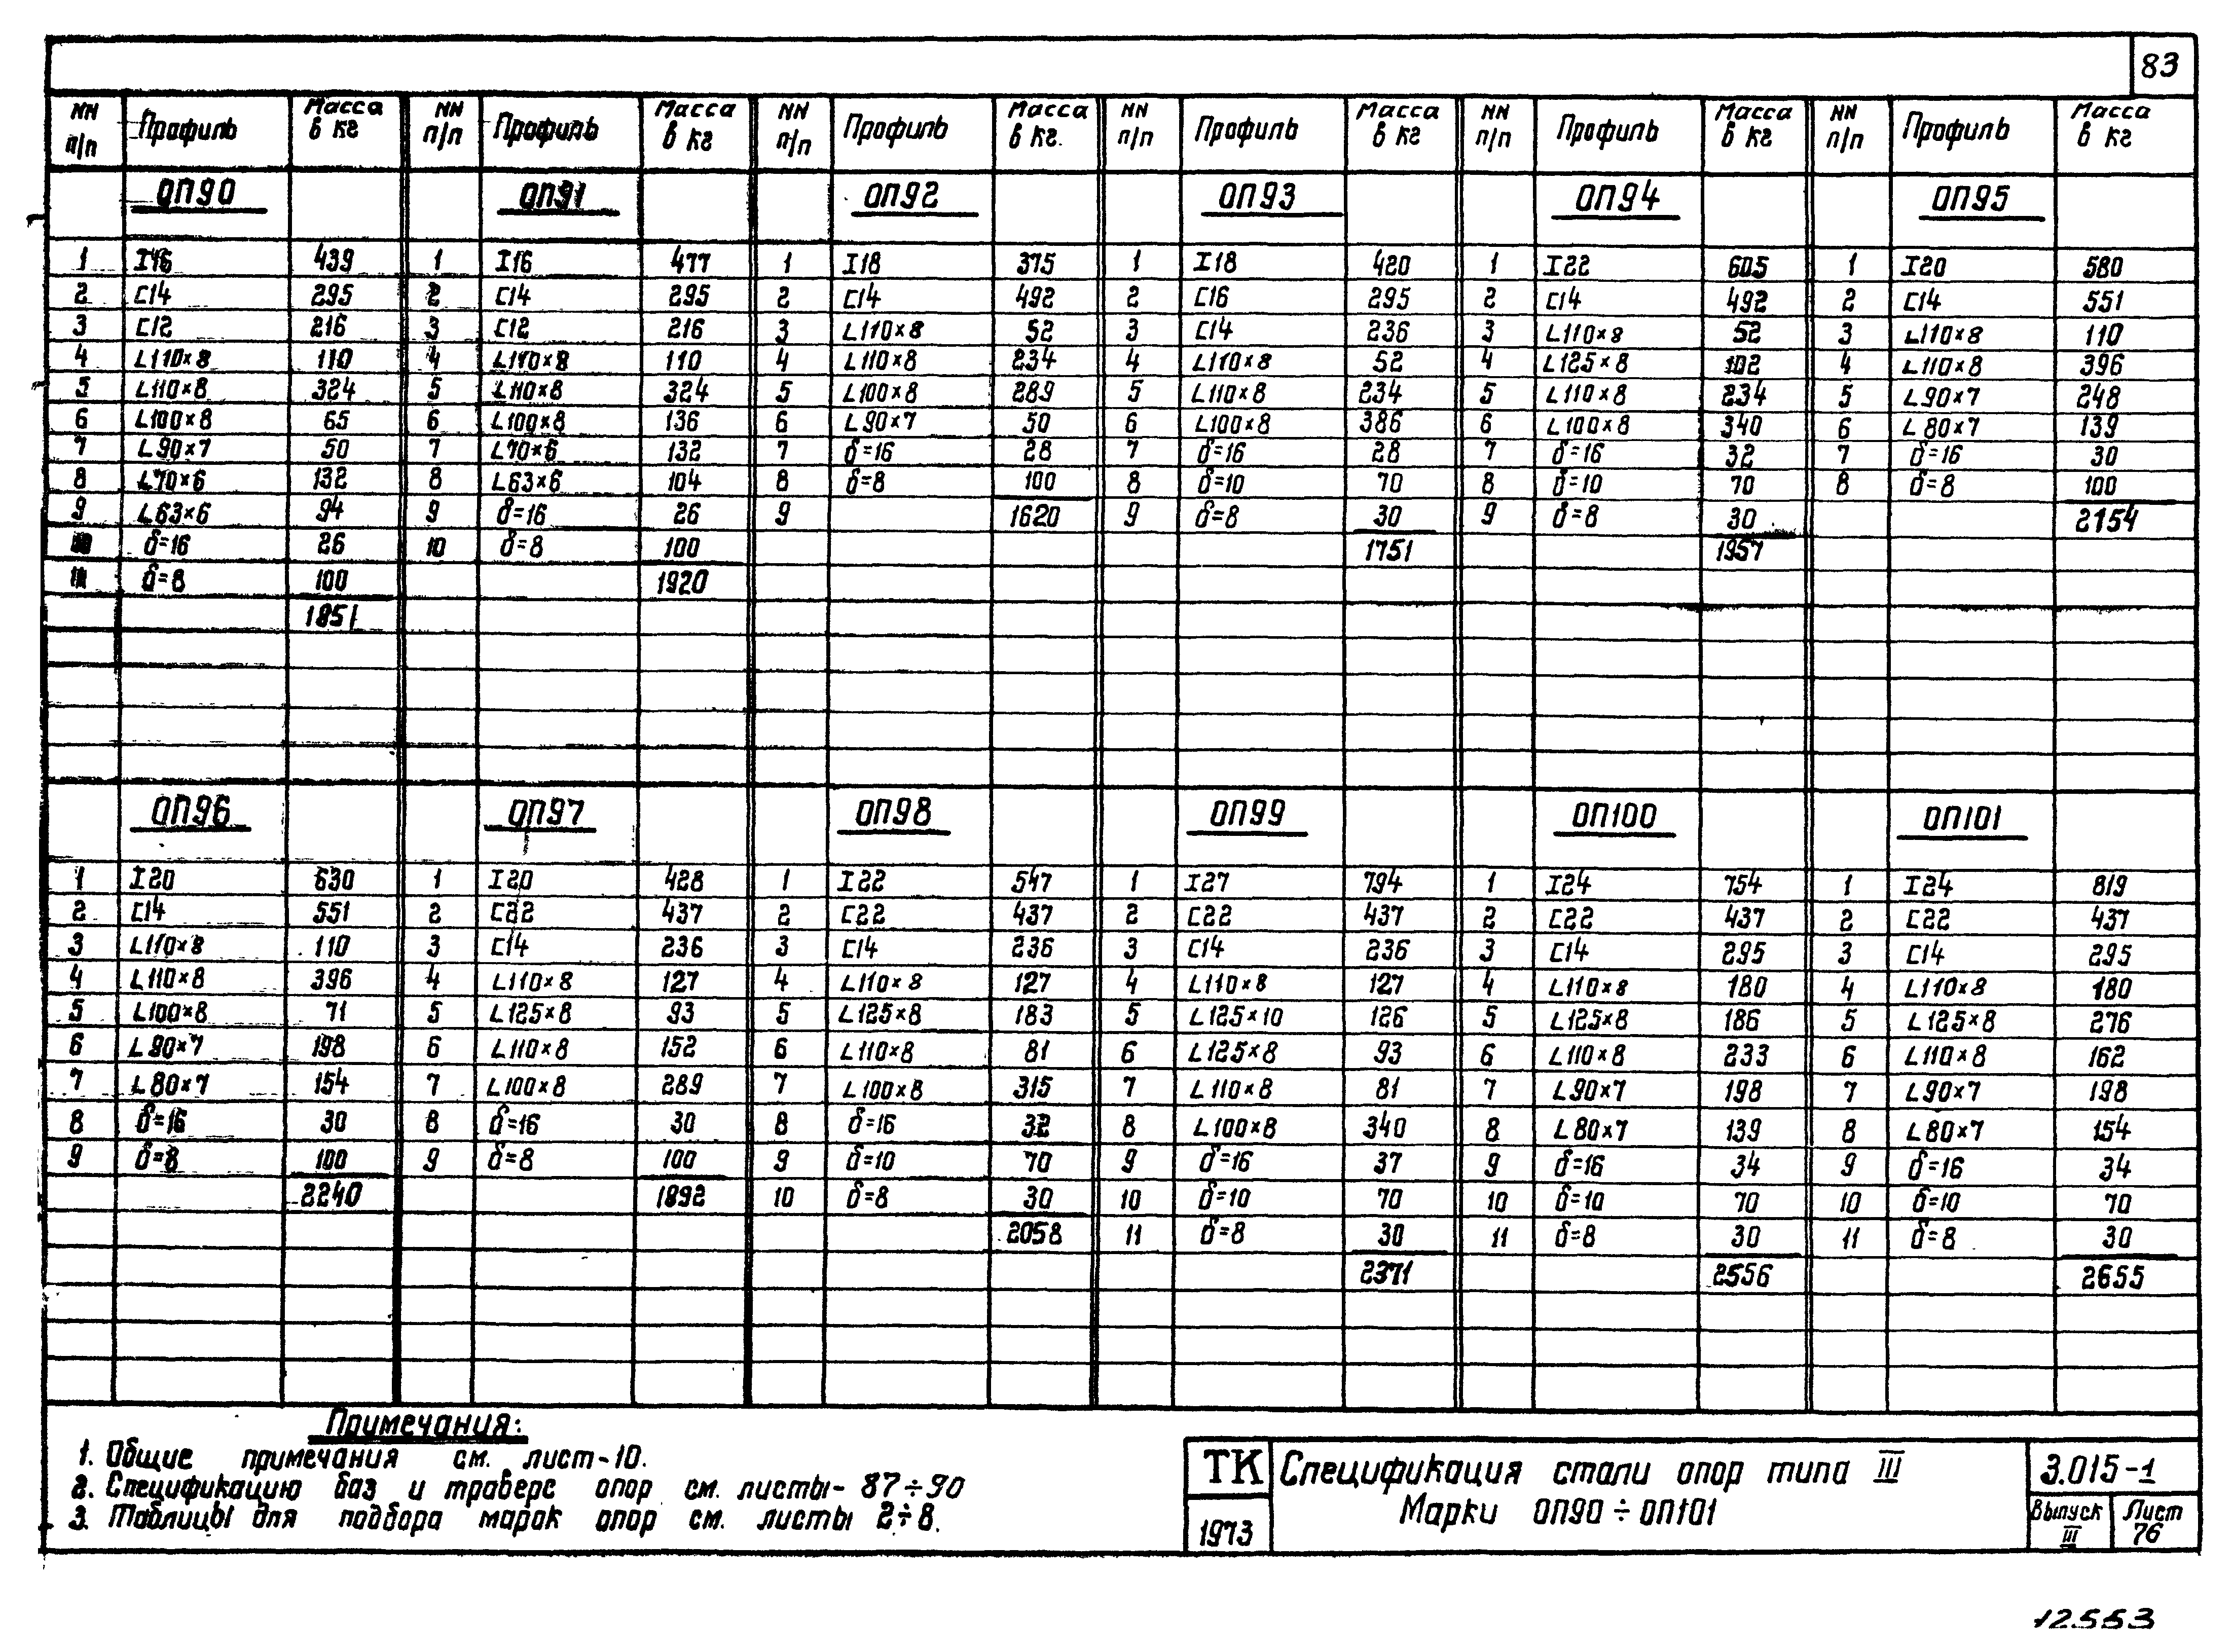 83
NN п/п Профиль Масса в кг NN п/п Профиль Масса в кг NN п/п Профиль Масса в кг. NN п/п Профиль Масса в кг NN п/п Профиль Масса в кг NN п/п Профиль Масса в кг
ОП90 ОП91 ОП92 ОП93 ОП94 ОП95
1 I16 439 1 I16 477 1 I18 375 1 I18 420 1 I22 605 1 I20 580
2 С14 295 2 С14 295 2 С14 492 2 С16 295 2 С14 492 2 С14 551
3 С12 216 3 С12 216 3 L110×8 52 3 С14 236 3 L110×8 52 3 L110×8 110
4 L110×8 110 4 L110×8 110 4 L110×8 234 4 L110×8 52 4 L125×8 102 4 L110×8 396
5 L110×8 324 5 L110×8 324 5 L100×8 289 5 L110×8 234 5 L110×8 234 5 L90×7 248
6 L100×8 65 6 L100×8 136 6 L90×7 50 6 L100×8 386 6 L100×8 340 6 L80×7 139
7 L90×7 50 7 L70×6 132 7 δ=16 28 7 δ=16 28 7 δ=16 32 7 δ=16 30
8 L70×6 132 8 L63×6 104 8 δ=8 100 8 δ=10 70 8 δ=10 70 8 δ=8 100
9 L63×6 94 9 δ=16 26 9 1620 9 δ=8 30 9 δ=8 30 2154
10 δ=16 26 10 δ=8 100 1751 1957
11 δ=8 100 1920
1851
ОП96 ОП97 ОП98 ОП99 ОП100 ОП101
1 I20 630 1 I20 428 1 I22 547 1 I27 794 1 I24 754 1 I24 819
2 С14 551 2 С22 437 2 С22 437 2 С22 437 2 С22 437 2 С22 437
3 L110×8 110 3 С14 236 3 С14 236 3 С14 236 3 С14 295 3 С14 295
4 L110×8 396 4 L110×8 127 4 L110×8 127 4 L110×8 127 4 L110×8 180 4 L110×8 180
5 L100×8 71 5 L125×8 93 5 L125×8 183 5 L125×10 126 5 L125×8 186 5 L125×8 276
6 L90×7 198 6 L110×8 152 6 L110×8 81 6 L125×8 93 6 L110×8 233 6 L110×8 162
7 L80×7 154 7 L100×8 289 7 L100×8 315 7 L110×8 81 7 L90×7 198 7 L90×7 198
8 δ=16 30 8 δ=16 30 8 δ=16 32 8 L100×8 340 8 L80×7 139 8 L80×7 154
9 δ=8 100 9 δ=8 100 9 δ=10 70 9 δ=16 37 9 δ=16 34 9 δ=16 34
2240 1892 10 δ=8 30 10 δ=10 70 10 δ=10 70 10 δ=10 70
2058 11 δ=8 30 11 δ=8 30 11 δ=8 30
2371 2556 2655
Примечания:
1. Общие примечания см. лист-10.
2. Спецификацию баз и траверс опор см. листы- 87÷90
3. Таблицы для подбора марок опор см. листы 2÷8.
ТК
1973
Спецификация стали опор типа III
Марки ОП90÷ОП101
3.015-1
Выпуск III
Лист 76
12553